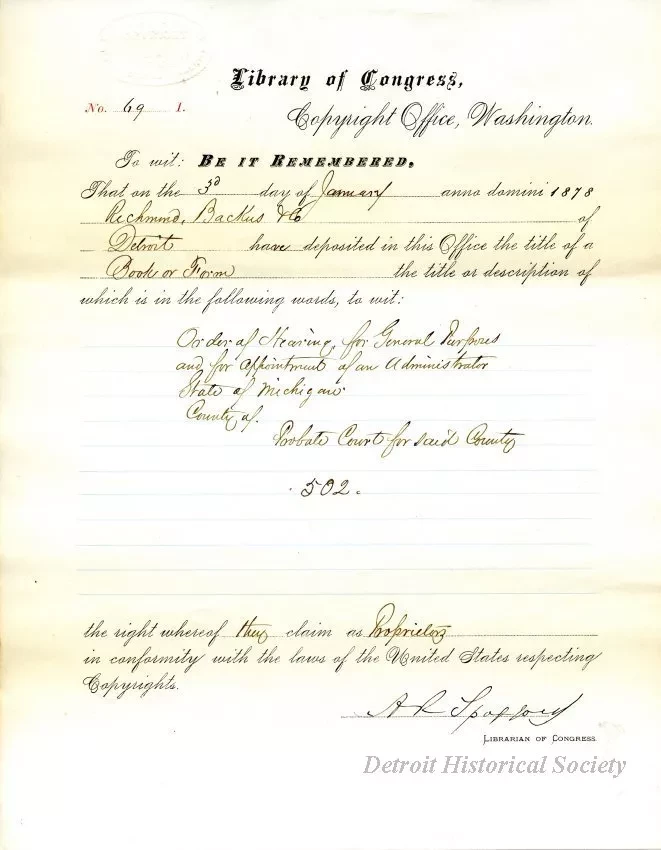 Library of Congress,
No. 69 I.
Copyright Office, Washington.
To wit: BE IT REMEMBERED,
That on the 3d day of January anno domini 1878
Richmond, Backus & Co of
Detroit have deposited in this Office the title of a
Book or Form the title or description of
which is in the following words, to wit:
Order of Hearing, for General Purposes
and for Appointment of an Administrator
State of Michigan
County of.
Probate Court for said County
. 502.
the right whereof they claim as Proprietors
in conformity with the laws of the United States respecting
Copyrights.
A R Spofford
LIBRARIAN OF CONGRESS.
Detroit Historical Society